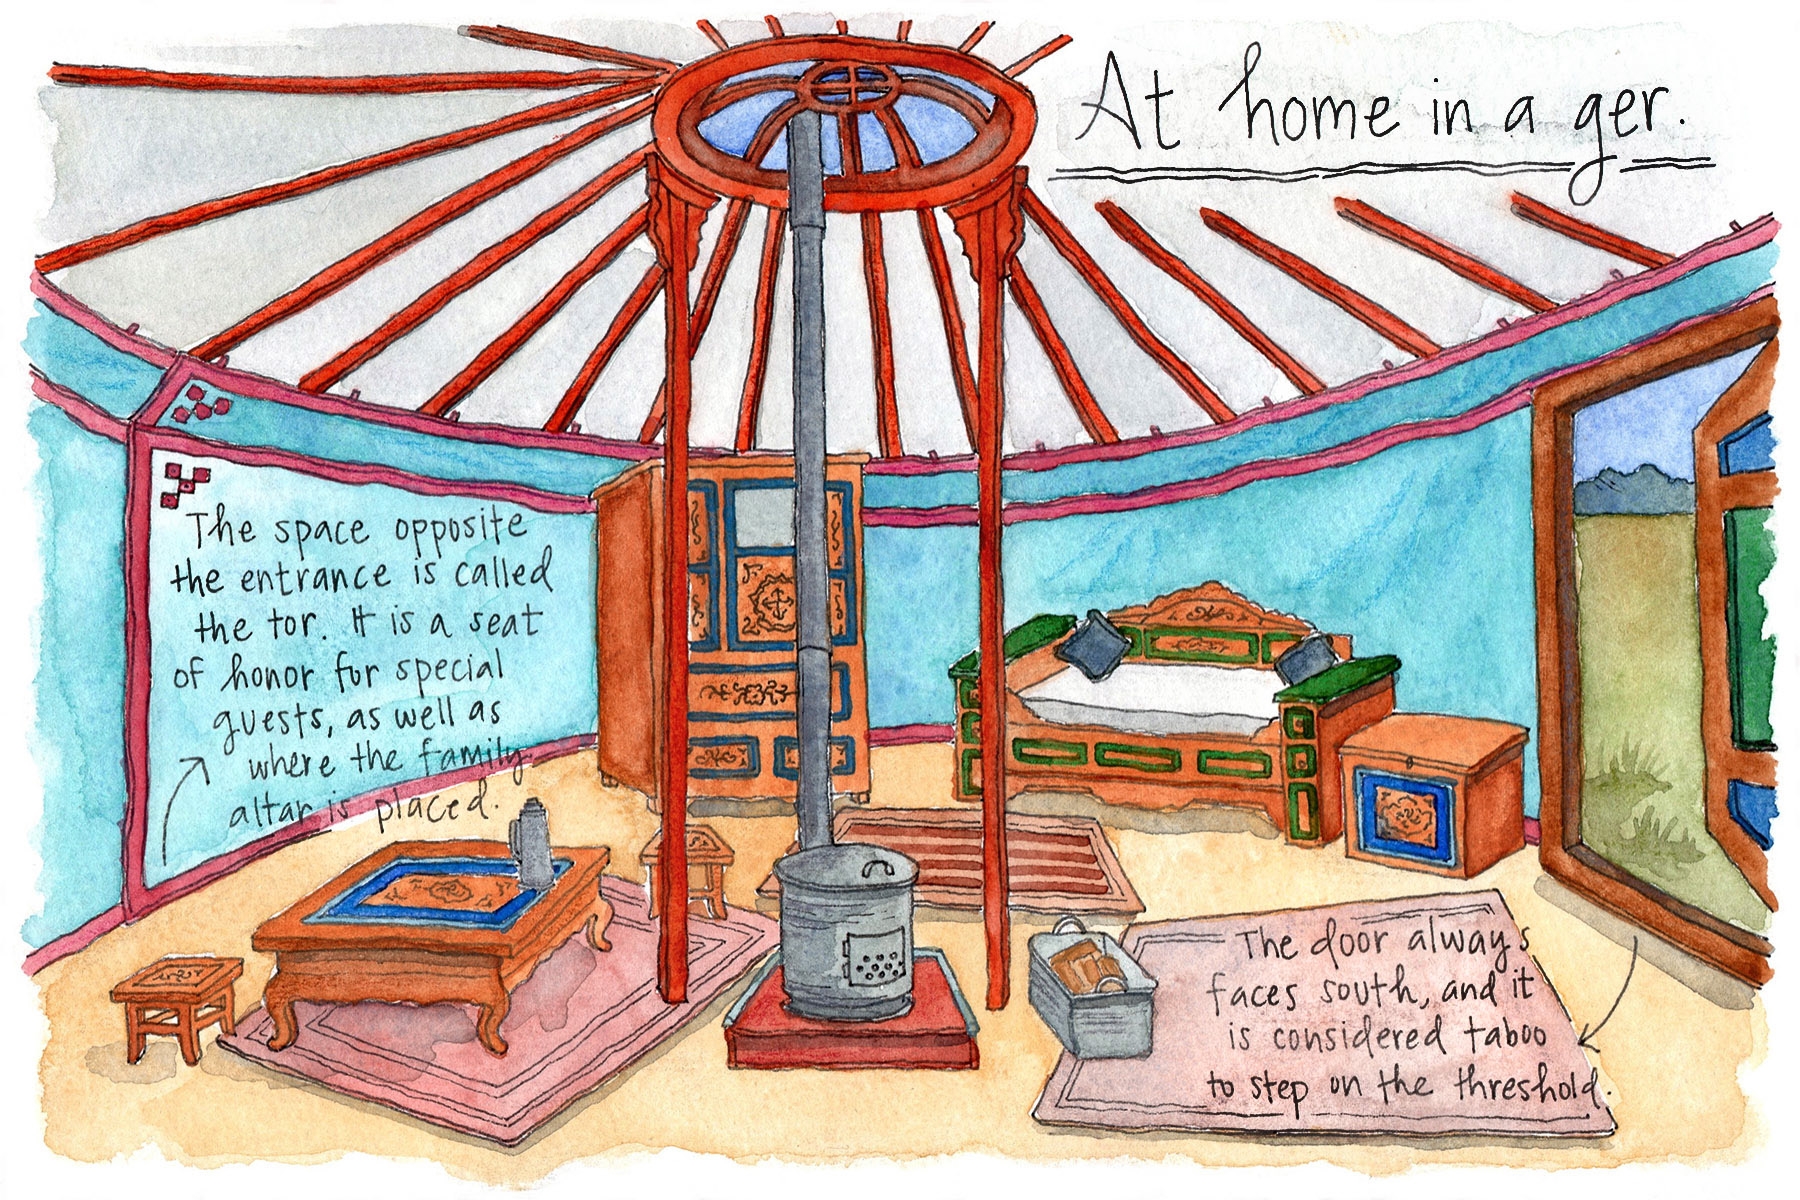 At home in a ger.
The space opposite
the entrance is called
the tor. It is a seat
of honor for special
guests, as well as
where the family
altar is placed.
The door always
faces south, and it
is considered taboo
to step on the threshold.